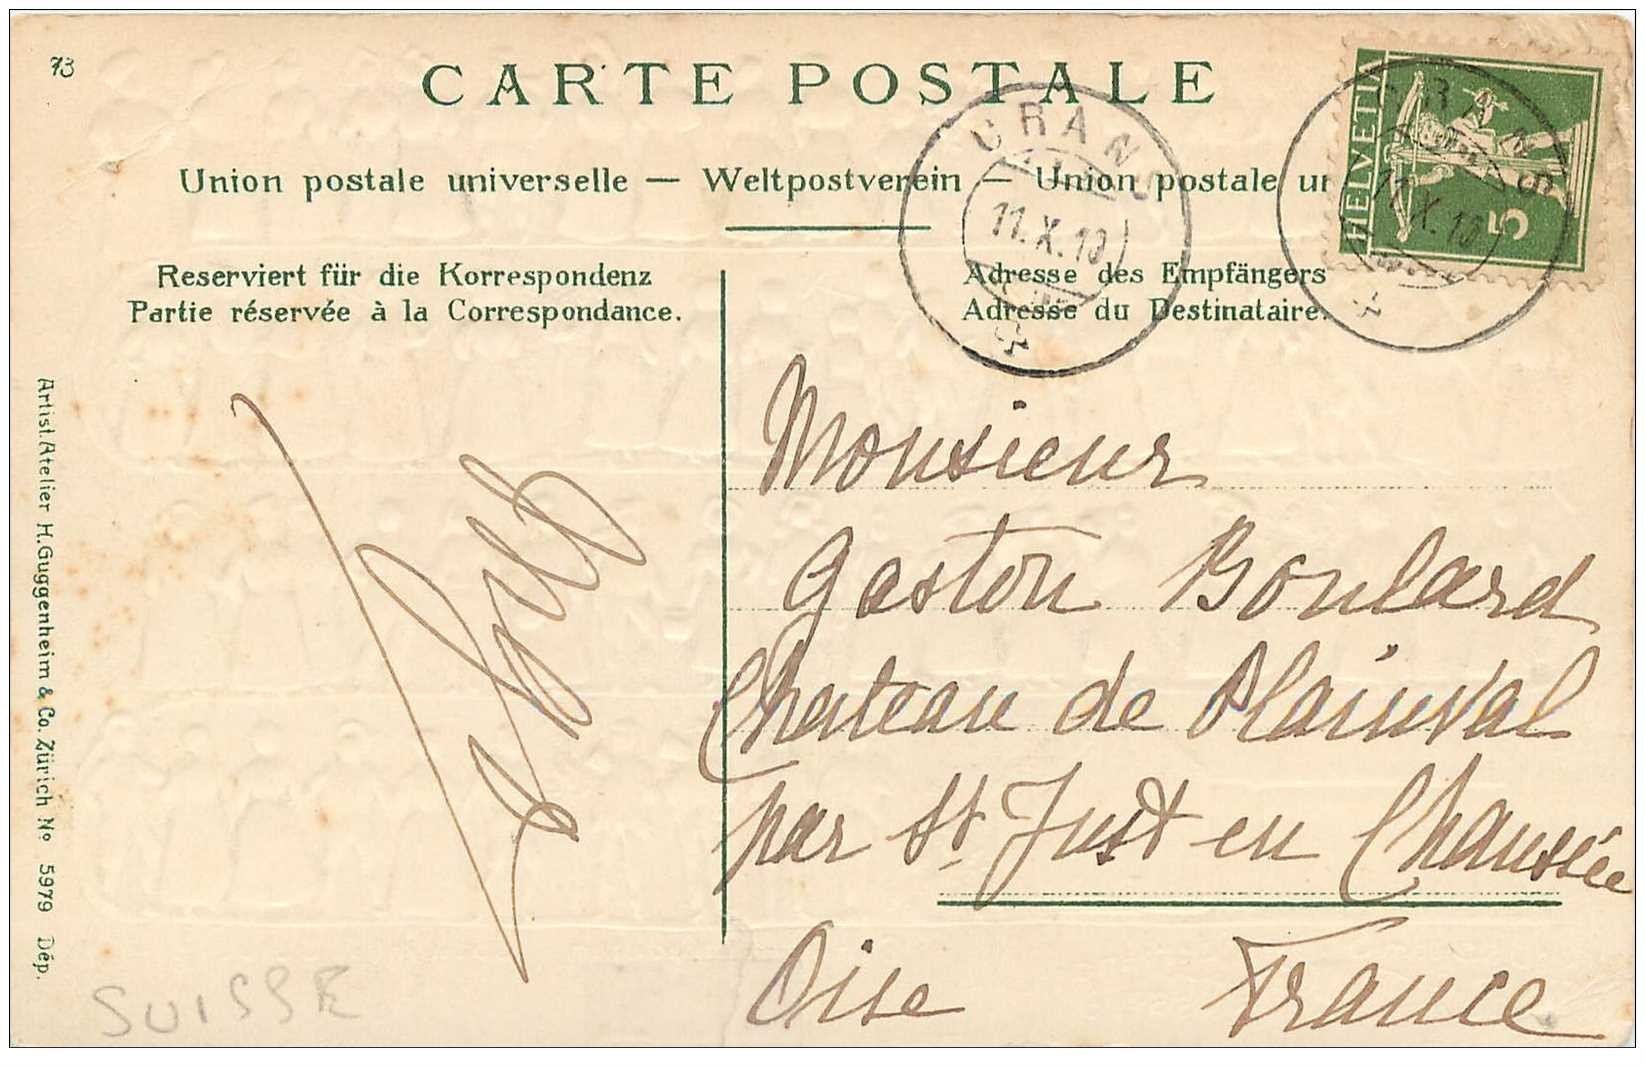 73
CARTE POSTALE
Union postale universelle — Weltpostverein — Union postale un
Reserviert für die Korrespondenz
Partie réservée à la Correspondance.
Adresse des Empfängers
Adresse du Destinataire.
CRANS
11.X.10
CRANS
11.X.10
HELVETIA
5
Monsieur
Gaston Boulard
Chateau de Plainval
par St Just en Chaussée
Oise France
Artist. Atelier H. Guggenheim & Co. Zürich No 5979 Dép.
SUISSE